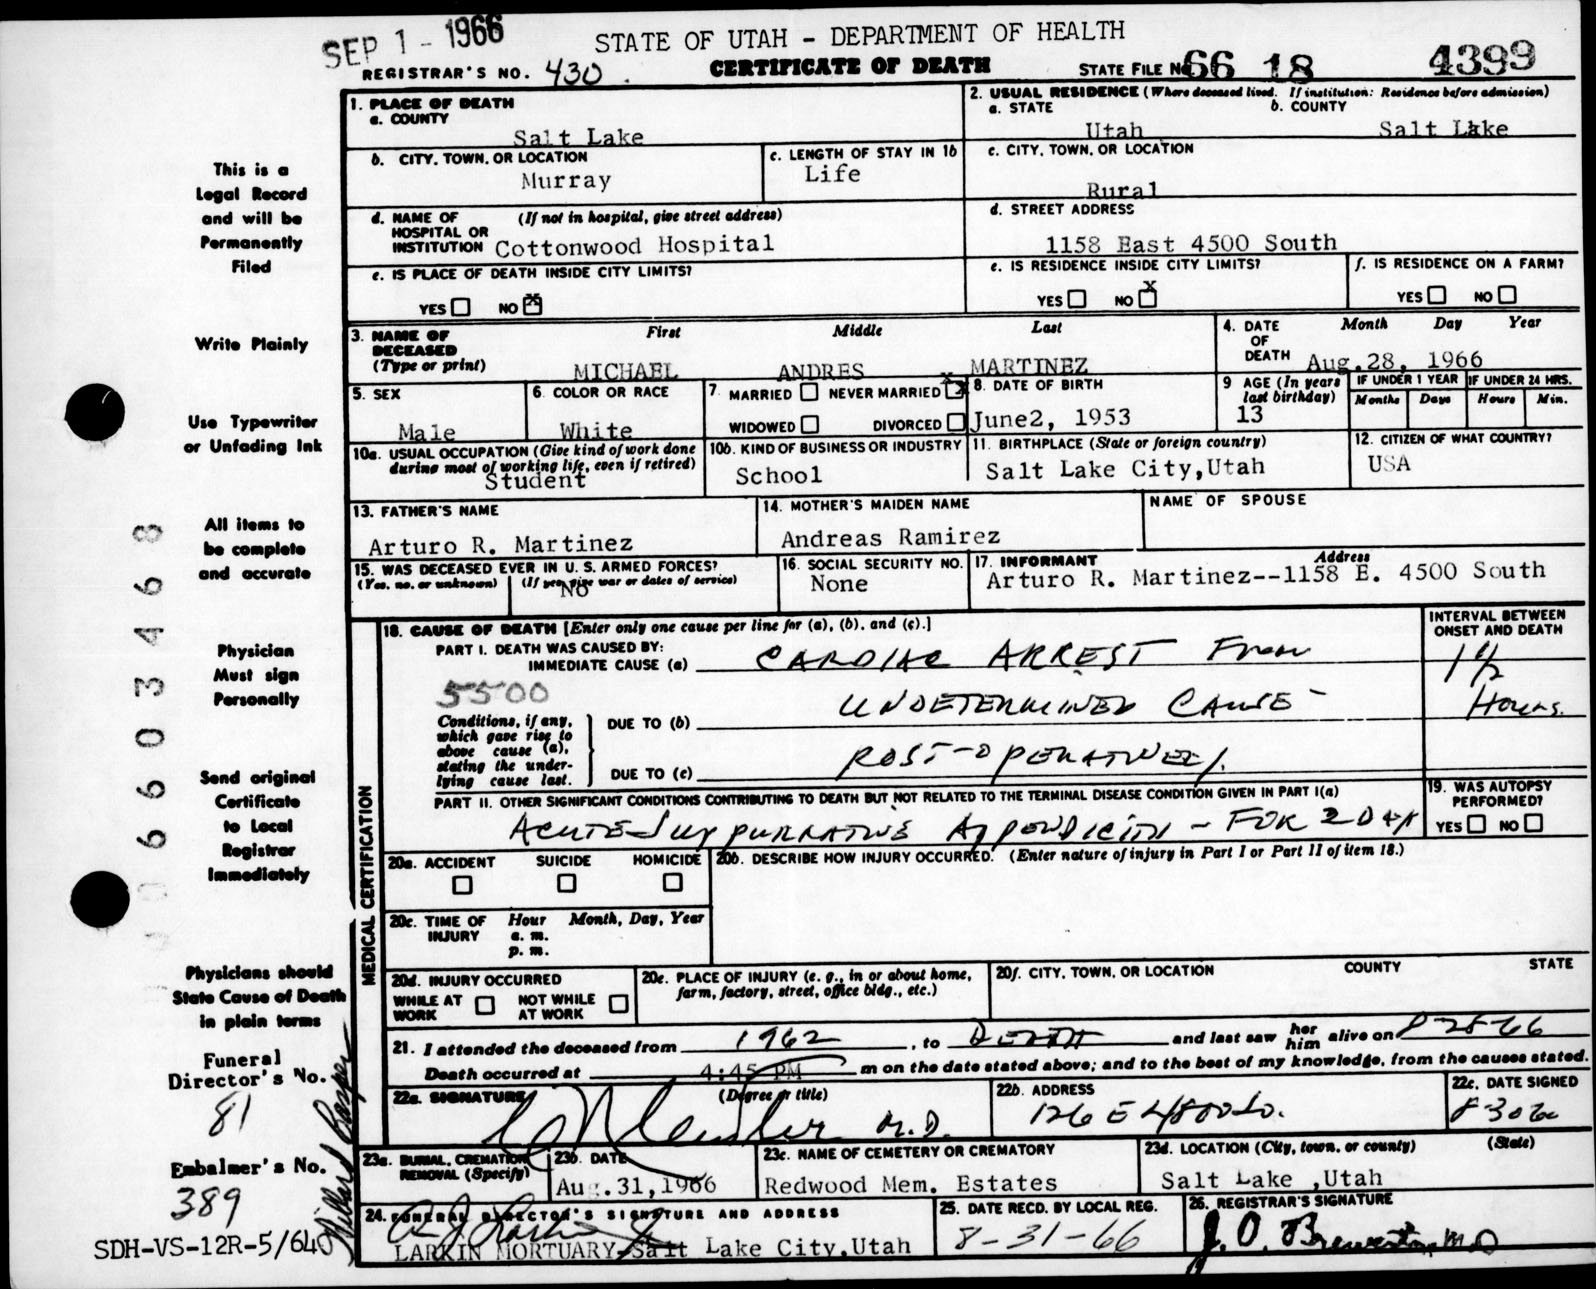 SEP 1 - 1966
STATE OF UTAH - DEPARTMENT OF HEALTH
REGISTRAR'S NO. 430.
CERTIFICATE OF DEATH
STATE FILE NO. 66 18 4399
1. PLACE OF DEATH
a. COUNTY
Salt Lake
2. USUAL RESIDENCE (Where deceased lived. If institution: Residence before admission)
a. STATE b. COUNTY
Utah Salt Lake
b. CITY, TOWN, OR LOCATION
Murray
c. LENGTH OF STAY IN 1b
Life
c. CITY, TOWN, OR LOCATION
Rural
d. NAME OF HOSPITAL OR INSTITUTION (If not in hospital, give street address)
Cottonwood Hospital
d. STREET ADDRESS
1158 East 4500 South
e. IS PLACE OF DEATH INSIDE CITY LIMITS?
YES NO X
e. IS RESIDENCE INSIDE CITY LIMITS?
YES NO X
f. IS RESIDENCE ON A FARM?
YES NO
3. NAME OF DECEASED (Type or print)
First Middle Last
MICHAEL ANDRES MARTINEZ
4. DATE OF DEATH
Month Day Year
Aug.28, 1966
5. SEX
Male
6. COLOR OR RACE
White
7. MARRIED NEVER MARRIED X
WIDOWED DIVORCED
8. DATE OF BIRTH
June2, 1953
9 AGE (In years last birthday)
13
IF UNDER 1 YEAR
Months Days
IF UNDER 24 HRS.
Hours Min.
10a. USUAL OCCUPATION (Give kind of work done during most of working life, even if retired)
Student
10b. KIND OF BUSINESS OR INDUSTRY
School
11. BIRTHPLACE (State or foreign country)
Salt Lake City,Utah
12. CITIZEN OF WHAT COUNTRY?
USA
13. FATHER'S NAME
Arturo R. Martinez
14. MOTHER'S MAIDEN NAME
Andreas Ramirez
NAME OF SPOUSE
15. WAS DECEASED EVER IN U. S. ARMED FORCES?
(Yes, no, or unknown) (If yes, give war or dates of service)
No
16. SOCIAL SECURITY NO.
None
17. INFORMANT Address
Arturo R. Martinez--1158 E. 4500 South
18. CAUSE OF DEATH [Enter only one cause per line for (a), (b), and (c).]
PART I. DEATH WAS CAUSED BY:
IMMEDIATE CAUSE (a) CARDIAC ARREST From
5500
Conditions, if any, which gave rise to above cause (a), stating the underlying cause last.
DUE TO (b) UNDETERMINED CAUSE -
DUE TO (c) POST-OPERATIVELY.
INTERVAL BETWEEN ONSET AND DEATH
1 1/2
Hours.
PART II. OTHER SIGNIFICANT CONDITIONS CONTRIBUTING TO DEATH BUT NOT RELATED TO THE TERMINAL DISEASE CONDITION GIVEN IN PART I(a)
ACUTE SUPPURATIVE APPENDICITIS - FOR 2 DAYS
19. WAS AUTOPSY PERFORMED?
YES NO
MEDICAL CERTIFICATION
20a. ACCIDENT SUICIDE HOMICIDE
20b. DESCRIBE HOW INJURY OCCURRED. (Enter nature of injury in Part I or Part II of item 18.)
20c. TIME OF INJURY Hour Month, Day, Year
a. m.
p. m.
20d. INJURY OCCURRED
WHILE AT WORK NOT WHILE AT WORK
20e. PLACE OF INJURY (e. g., in or about home, farm, factory, street, office bldg., etc.)
20f. CITY, TOWN, OR LOCATION COUNTY STATE
21. I attended the deceased from 1962, to DEATH and last saw her him alive on 8-28-66
Death occurred at 4:45 PM m on the date stated above; and to the best of my knowledge, from the causes stated.
22a. SIGNATURE (Degree or title)
M.D.
22b. ADDRESS
126 E 4800 So.
22c. DATE SIGNED
8-30-66
23a. BURIAL, CREMATION REMOVAL (Specify)
23b. DATE
Aug.31,1966
23c. NAME OF CEMETERY OR CREMATORY
Redwood Mem. Estates
23d. LOCATION (City, town, or county) (State)
Salt Lake ,Utah
24. FUNERAL DIRECTOR'S SIGNATURE AND ADDRESS
LARKIN MORTUARY Salt Lake City,Utah
25. DATE RECD. BY LOCAL REG.
8-31-66
26. REGISTRAR'S SIGNATURE
This is a
Legal Record
and will be
Permanently
Filed
Write Plainly
Use Typewriter
or Unfading Ink
All items to
be complete
and accurate
Physician
Must sign
Personally
Send original
Certificate
to Local
Registrar
Immediately
Physicians should
State Cause of Death
in plain terms
Funeral
Director's No.
81
Embalmer's No.
389
SDH-VS-12R-5/64